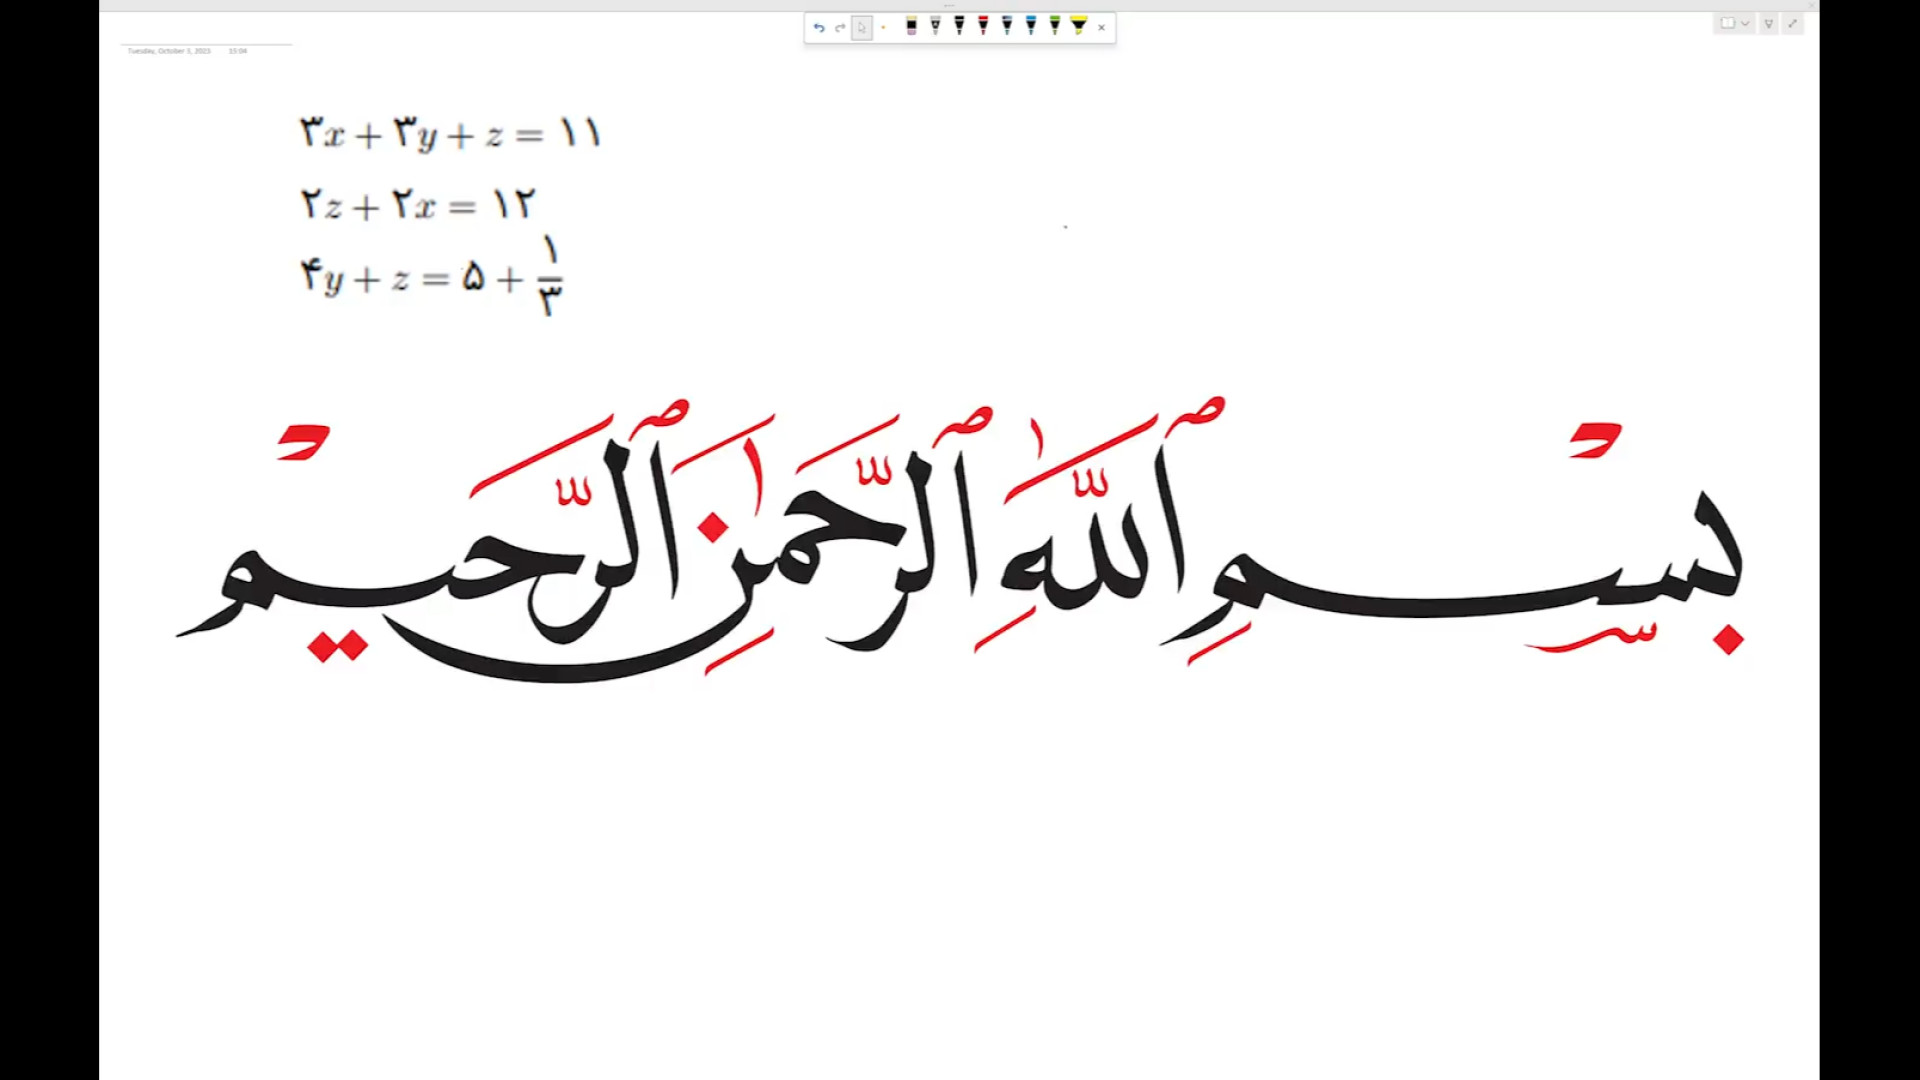 Tuesday, October 3, 2023 15:04
۳x + ۳y + z = ۱۱
۲z + ۲x = ۱۲
۴y + z = ۵ + ۱/۳
بِسْمِ ٱللَّهِ ٱلرَّحْمَٰنِ ٱلرَّحِيمْ